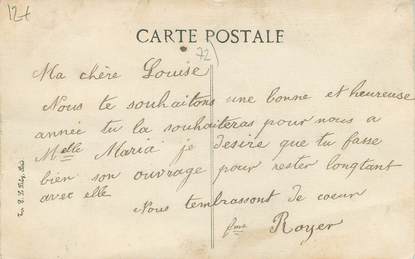 12+
CARTE POSTALE
72
Ma chère Louise
Nous te souhaitons une bonne et heureuse
année tu la souhaiteras pour nous a
Melle Maria je desire que tu fasse
bien son ouvrage pour rester longtant
avec elle
Nous tembrassont de cœur
fme Royer